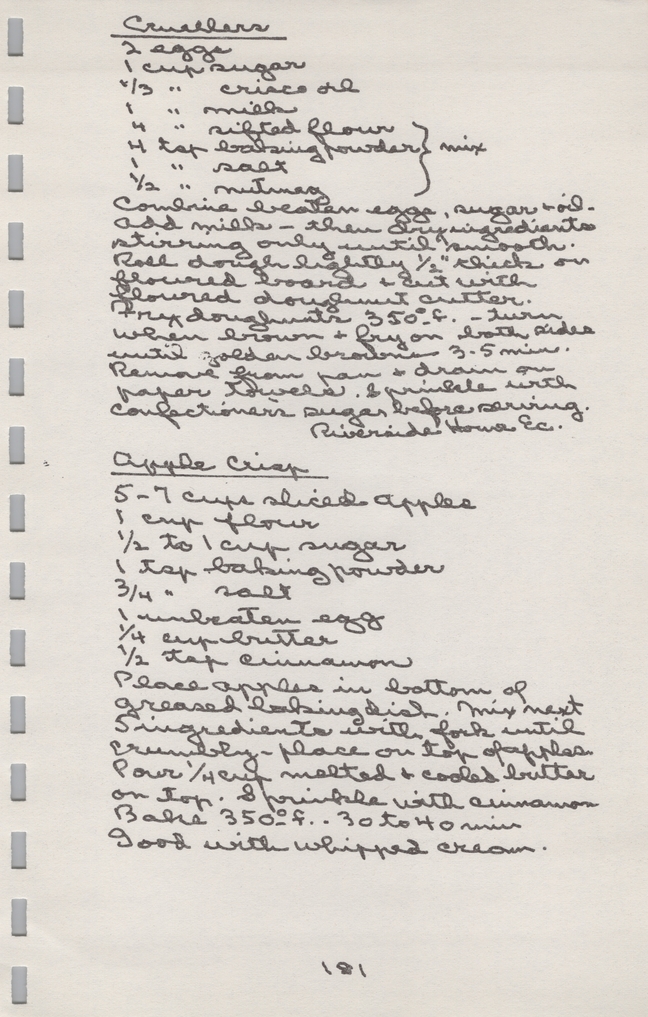 Crullers
2 eggs
1 cup sugar
1/3 " crisco oil
1 " milk
4 " sifted flour
4 tsp baking powder } mix
1 " salt
1/2 " nutmeg
Combine beaten eggs, sugar + oil -
add milk - then dry ingredients
stirring only until smooth.
Roll dough lightly 1/2" thick on
floured board + cut with
floured doughnut cutter.
Fry doughnuts 350° f. - turn
when brown + fry on both sides
until golden brown 3-5 min.
Remove from pan + drain on
paper towels. Sprinkle with
confectioners sugar before serving.
Riverside Home Ec.
Apple Crisp
5-7 cups sliced apples
1 cup flour
1/2 to 1 cup sugar
1 tsp baking powder
3/4 " salt
1 unbeaten egg
1/4 cup butter
1/2 tsp cinnamon
Place apples in bottom of
greased baking dish. Mix next
5 ingredients with fork until
crumbly - place on top of apples.
Pour 1/4 cup melted + cooled butter
on top. Sprinkle with cinnamon
Bake 350° f. . 30 to 40 min
Good with whipped cream.
181